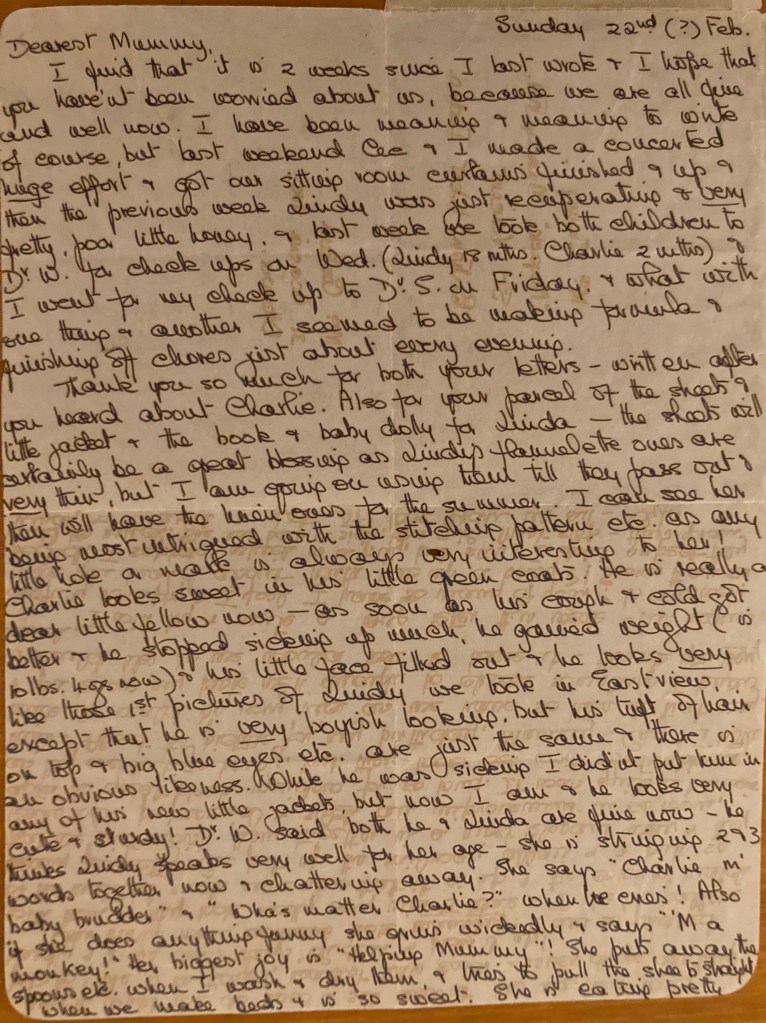 Sunday 22nd (?) Feb.
Dearest Mummy,
I find that it is 2 weeks since I last wrote & I hope that
you have'nt been worried about us, because we are all fine
and well now. I have been meaning & meaning to write
of course, but last weekend Cec & I made a concerted
huge effort & got our sitting room curtains finished & up &
then the previous week Lindy was just recuperating & very
pretty, poor little honey, & last week we took both children to
Dr. W. for check ups on Wed. (Lindy 18 mths. Charlie 2 mths) &
I went for my check up to Dr. S. on Friday. & what with
one thing & another I seemed to be making formula &
finishing off chores just about every evening.
Thank you so much for both your letters – written after
you heard about Charlie. Also for your parcel of the sheets &
little jacket & the book & baby dolly for Linda – the sheets will
certainly be a great blessing as Lindy's flannelete ones are
very thin, but I am going on using them till they pass out &
then will have the new ones for the summer. I can see her
being most intrigued with the stitching pattern etc. as any
little hole or mark is always very interesting to her!
Charlie looks sweet in his little green coats. He is really a
dear little fellow now – as soon as his cough & cold got
better & he stopped sicking up much, he gained weight (is
10lbs. 4ozs now) & his little face filled out & he looks very
like those 1st pictures of Lindy we took in Eastview,
except that he is very boyish looking, but his tuft of hair
on top & big blue eyes etc. are just the same & there is
an obvious likeness. While he was sicking I didn't put him in
any of his new little jackets, but now I am & he looks very
cute & sturdy! Dr. W. said both he & Linda are fine now – he
thinks Lindy speaks very well for her age – she is stringing 2 & 3
words together now & chattering away. She says "Charlie m'
baby brudder" & "Wha's matter Charlie?" when he cries! Also
if she does anything funny she grins wickedly & says "'M a
monkey!" Her biggest joy is "Helping Mummy"! She puts away the
spoons etc. when I wash & dry them, & tries to pull the sheets straight
when we make beds & is so sweet. She is eating pretty